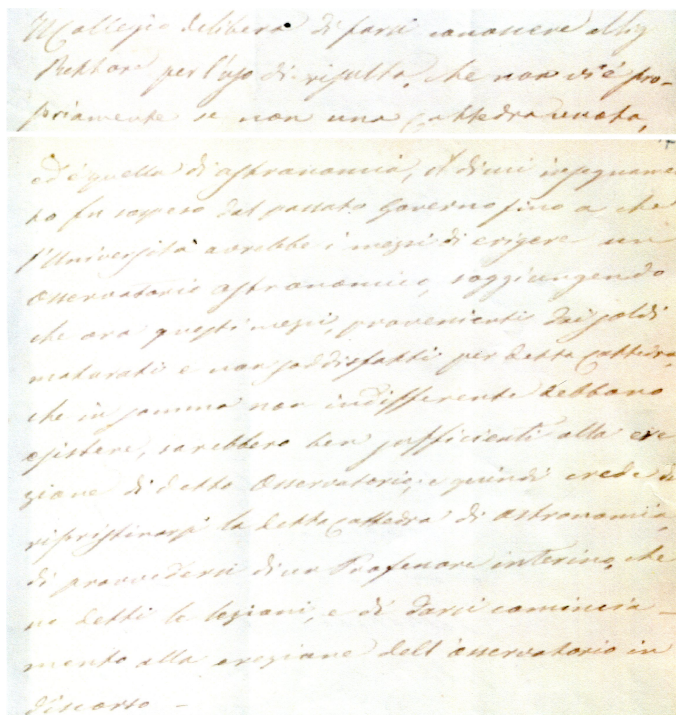 Il Collegio delibera di farsi conoscere al Sig
Rettore per l'uso di risulta, che non vi è pro-
priamente se non una Cattedra vuota,
ed è quella di astronomia, il di cui insegname
to fu sospeso dal passato Governo fino a che
l'Università avrebbe i mezzi di erigere un
Osservatorio astronomico, soggiungendo
che ora questi mezzi, provenienti dai soldi
maturati e non soddisfatti per detta Cattedra,
che in somma non indifferente debbono
esistere, sarebbero ben sufficienti alla ere
zione di detto Osservatorio; e quindi crede
ripristinarsi la detta Cattedra di astronomia,
di provvedersi di un Professore interino, che
ne detti le lezioni, e di darsi comincia-
mento alla erezione dell'osservatorio in
discorso –